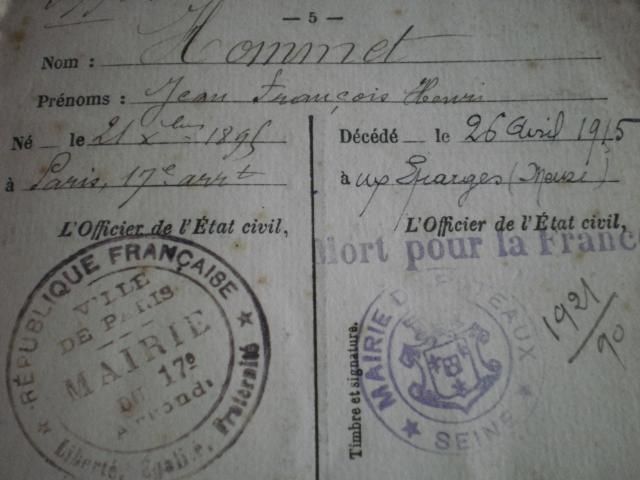 — 5 —
Nom : Hommet
Prénoms : Jean François Henri
Né — le 21 Xbre 1895
à Paris, 17e arrt
L'Officier de l'État civil,
Décédé — le 26 Avril 1915
à ux Eparges (Meuse)
L'Officier de l'État civil,
Mort pour la Franc
RÉPUBLIQUE FRANÇAISE
VILLE
DE PARIS
MAIRIE
DU 17e
Arrond.
Liberté, Égalité, Fraternité
Timbre et signature.
MAIRIE DE PUTEAUX
SEINE
1921
90